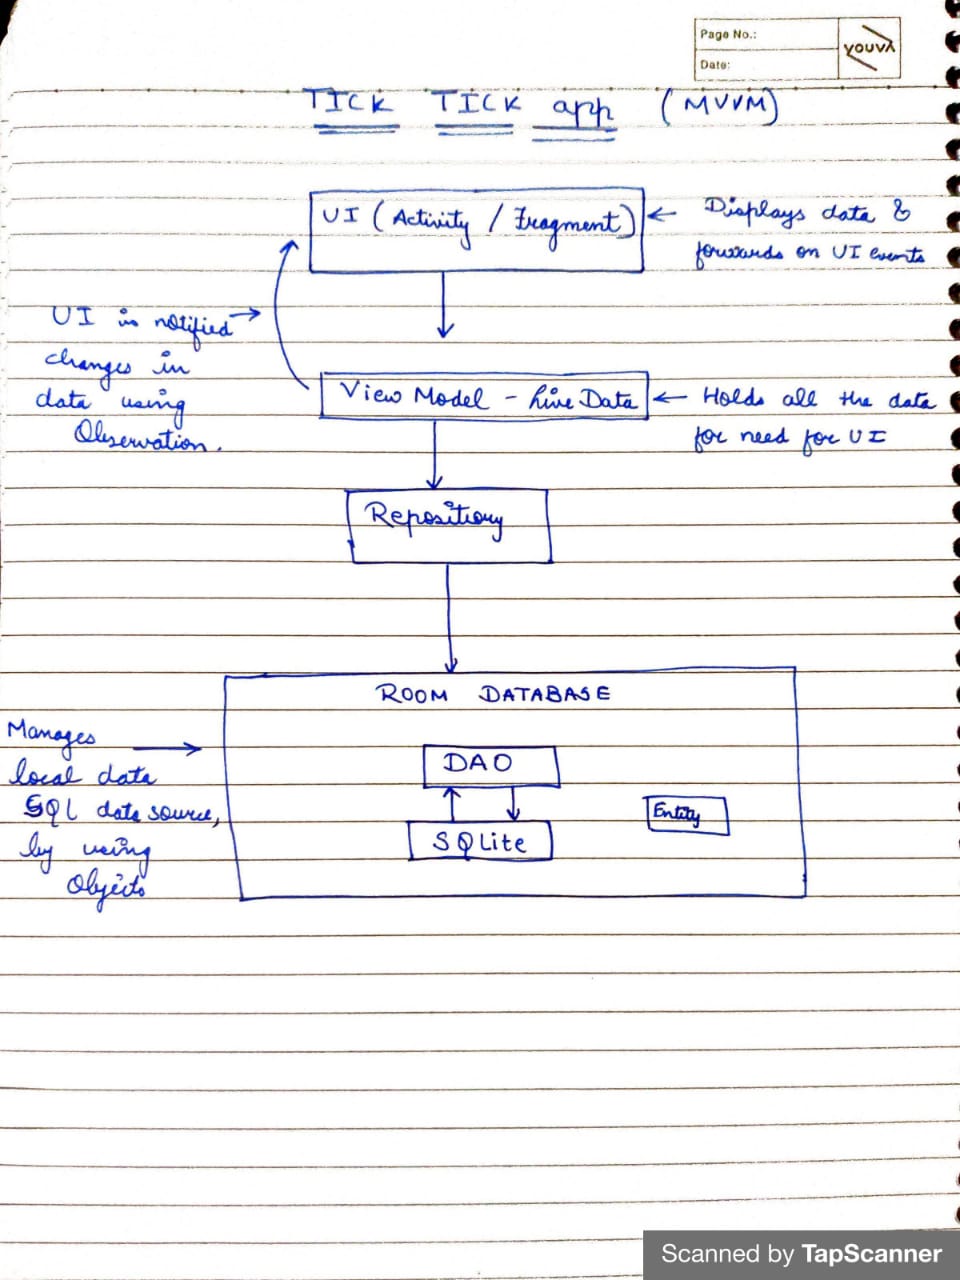 Page No.:
Date:
youva
TICK TICK app (MVVM)
UI (Activity / Fragment)
Displays data &
forwards on UI events
UI is notified
changes in
data using
Observation.
View Model - Live Data
Holds all the data
for need for UI
Repositiory
ROOM DATABASE
Manages
local data
SQL data source,
by using
Objects
DAO
SQLite
Entity
Scanned by TapScanner